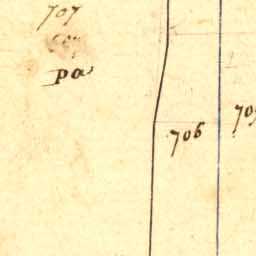 707
pa
706